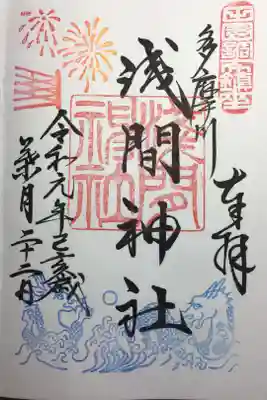 奉拝
多摩川
浅間神社
淺間
神社
令和元年己亥歳
葉月二十二日